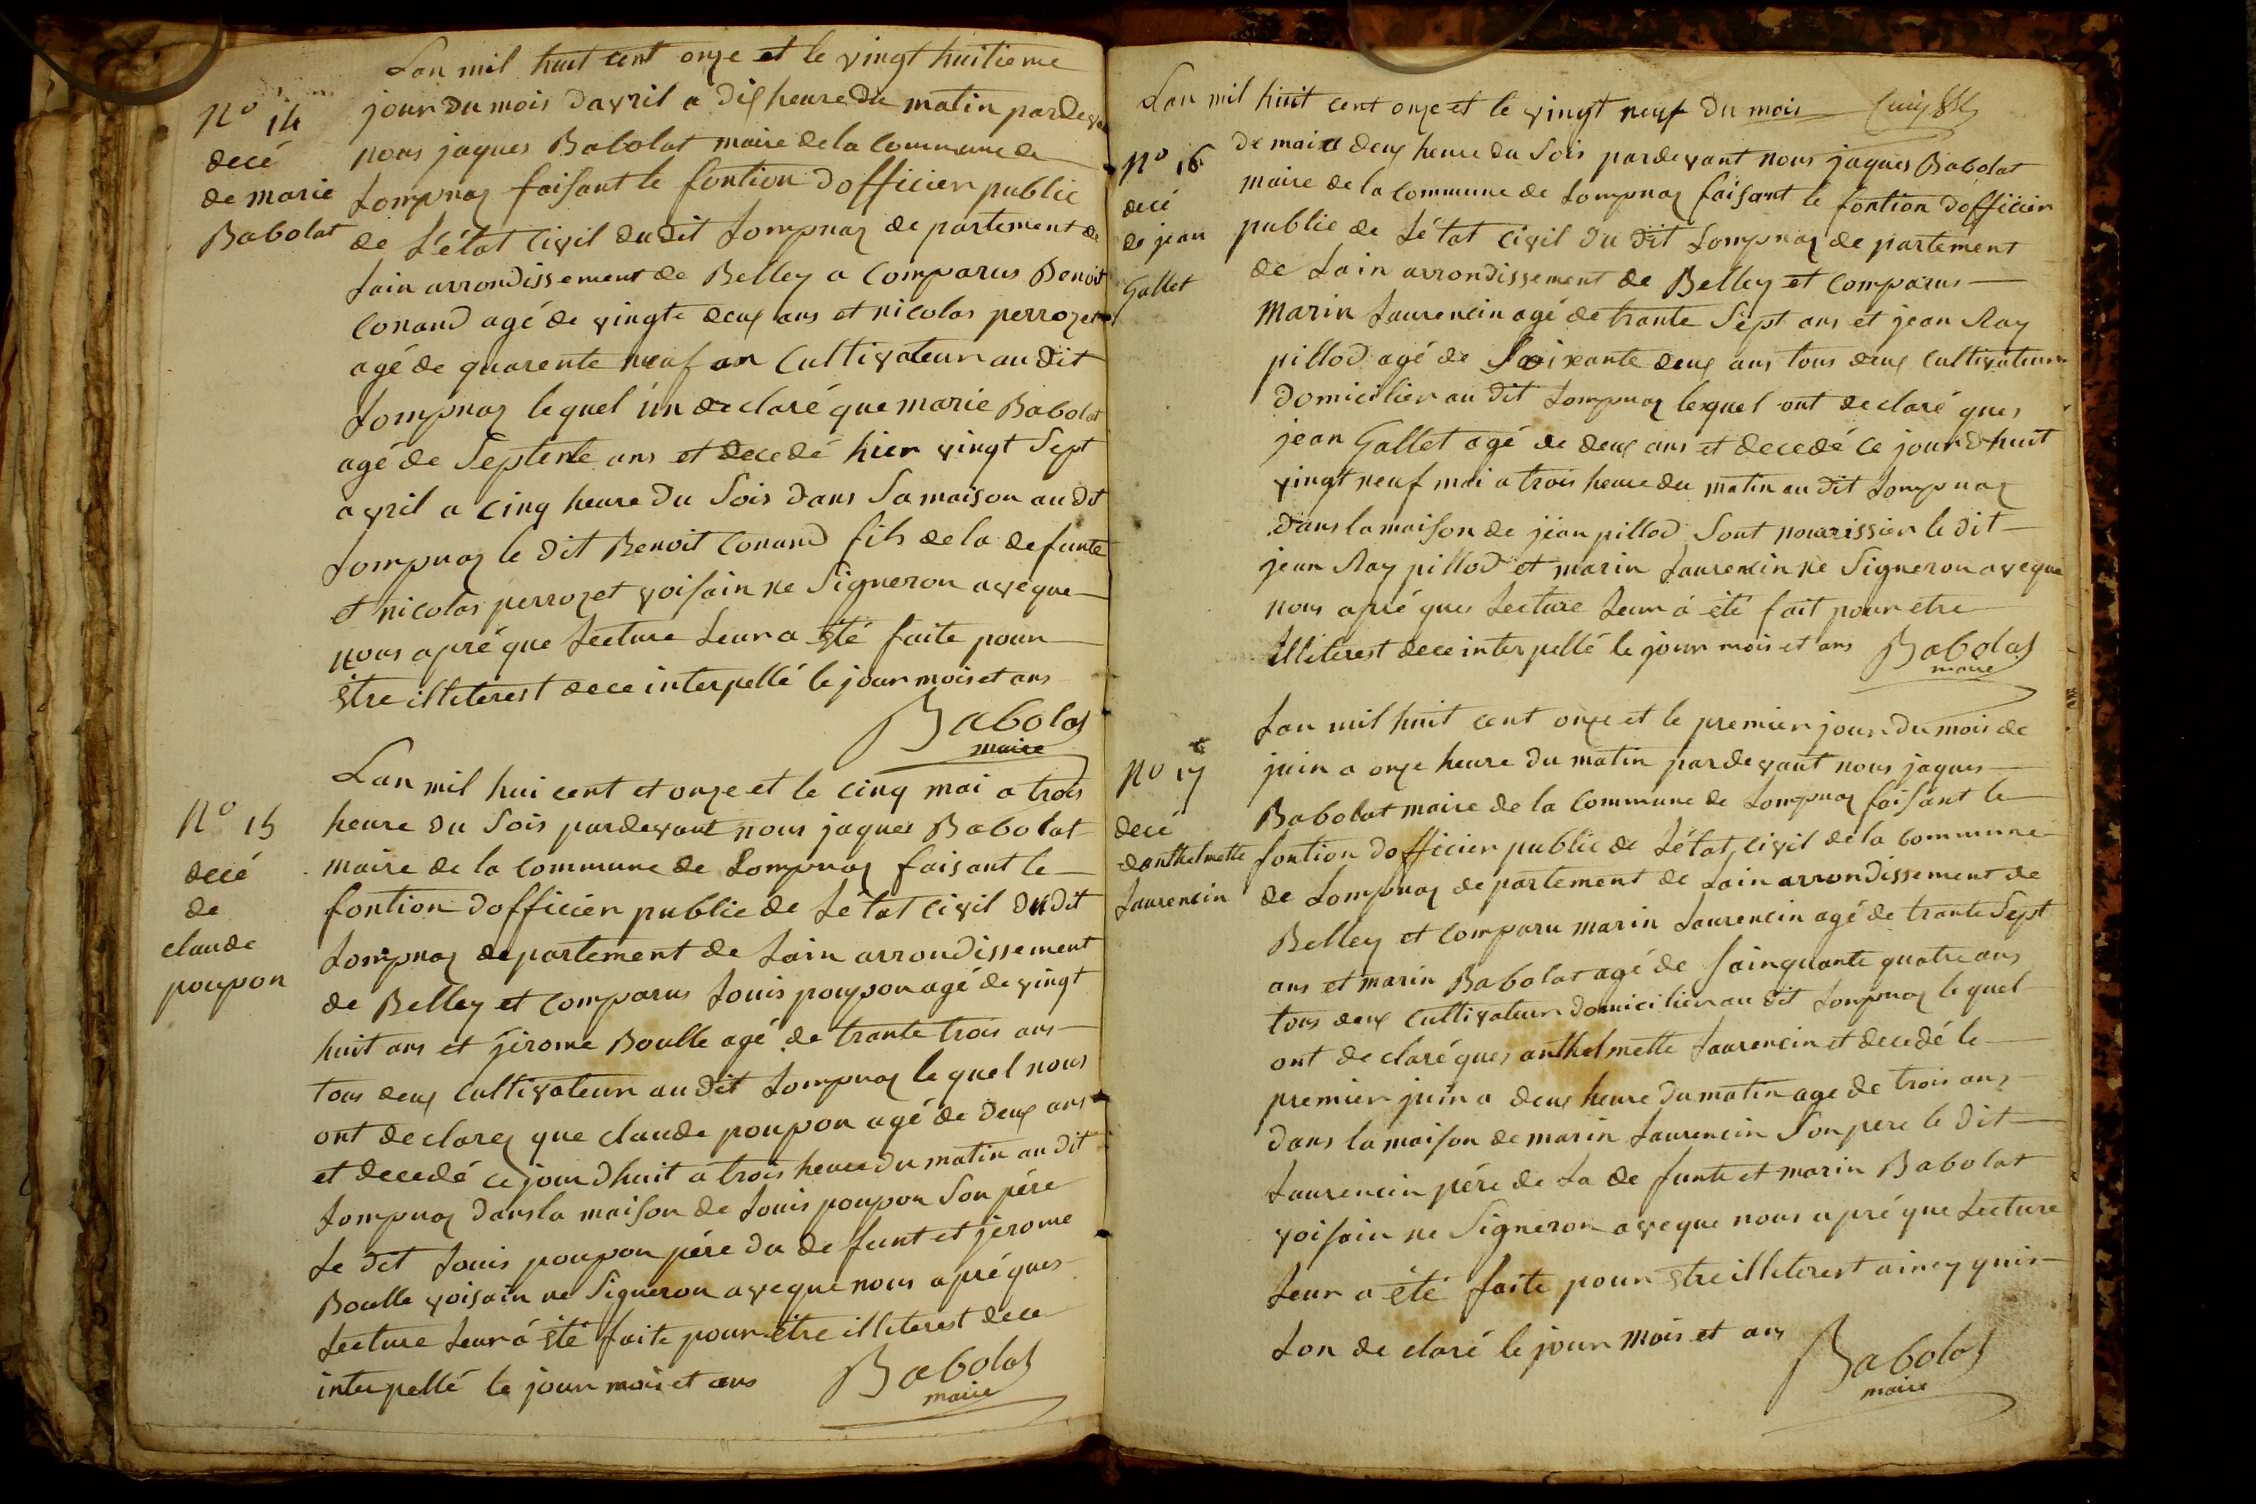 Lan mil huit cent onze et le vingt huitieme
N° 14
decé
de marie
Babolat
jour du mois davril a dix heure du matin pardevan
nous jaques Babolat maire de la Commune de
Lompnaz faisant le fontion dofficier public
de L'état Civil dudit Lompnaz de partement de
Lain arrondissement de Belley a Comparus Benoit
Conand agé de vingte deux ans et nicolas perrozet
agé de quarente neuf an Cultivateur au dit
Lompnaz lequel un declaré que marie Babolat
agé de Septente ans et decedé hier vingt Sept
avril a cinq heure du Sois dans Sa maison au dit
Lompnaz le dit Benoit Conand fils de la defunte
et nicolas perrozet voisain ne Signeron aveque
nous apré que Lecture Leur a été faite pour
étre illiterest dece interpellé le jour mois et ans
Babolat
maire
N° 15
decé
de
claude
poupon
Lan mil hui cent et onze et le cinq mai a trois
heure du Sois pardevant nous jaques Babolat
maire de la Commune de Lompnaz faisant le
fontion dofficier public de Létat Civil dudit
Lompnaz departement de Lain arrondissement
de Belley et Comparus Louis poupon agé de vingt
huit ans et jérome Boulle agé de trante trois ans
tous deux Cultivateur au dit Lompnaz le quel nous
ont declarez que claude poupon agé de deux ans
et decedé ce jourdhuit a trois heure du matin au dit
Lompnaz dans la maison de Louis poupon Son pére
Le dit Louis poupon pére du defunt et jerome
Boulle voisain ne Signeron aveque nous apré ques
Lecture Leur á été faite pour étre illiterest dece
interpellé le jour mois et ans
Babolat
maire
Lan mil huit cent onze et le vingt neuf du mois
N° 16
decé
de jean
Gallet
de mai a deux heure du Sois pardevant nous jaques Babolat
maire de la Commune de Lompnaz faisant le fontion dofficier
public de Létat Civil du dit Lompnaz de partement
de Lain arrondissement de Belley et Comparus
Marin Laurencin agé de trante Sept ans et jean Ray
pillod agé de Soixante deux ans tous deux Cultivateur
domicilier au dit Lompnaz lequel ont declaré ques
jean Gallet agé de deux ans et decedé ce jourdhuit
vingt neuf mai a trois heure du matin au dit Lompnaz
dans la maison de jean pillod Sont nourissier le dit
jean Ray pillod et marin Laurencin ne Signeron aveque
nous apré ques Lecture Leur á été fait pour etre
illiterest dece interpellé le jour mois et ans
Babolat
maire
N° 17
decé
danthelmette
Laurencin
Lan mil huit cent onze et le premier jour du mois de
juin a onze heure du matin pardevant nous jaques
Babolat maire de la Commune de Lompnaz faisant le
fontion dofficier public de Létat Civil de la Commune
de Lompnaz departement de Lain arrondissement de
Belley et Comparu marin Laurencin agé de trante Sept
ans et marin Babolat agé de Sainquante quatre ans
tous deux Cultivateur domicilier au dit Lompnaz le quel
ont de claré ques anthelmette Laurencin et decedé le
premier juin a deux heure du matin age de trois ans
dans la maison de marin Laurencin Son pere le dit
Laurencin pére de La de funte et marin Babolat
voisain ne Signeron aveque nous apré que Lecture
Leur a été faite pour étre illiterest aincy quis
Lon de claré le jour mois et ans
Babolat
maire